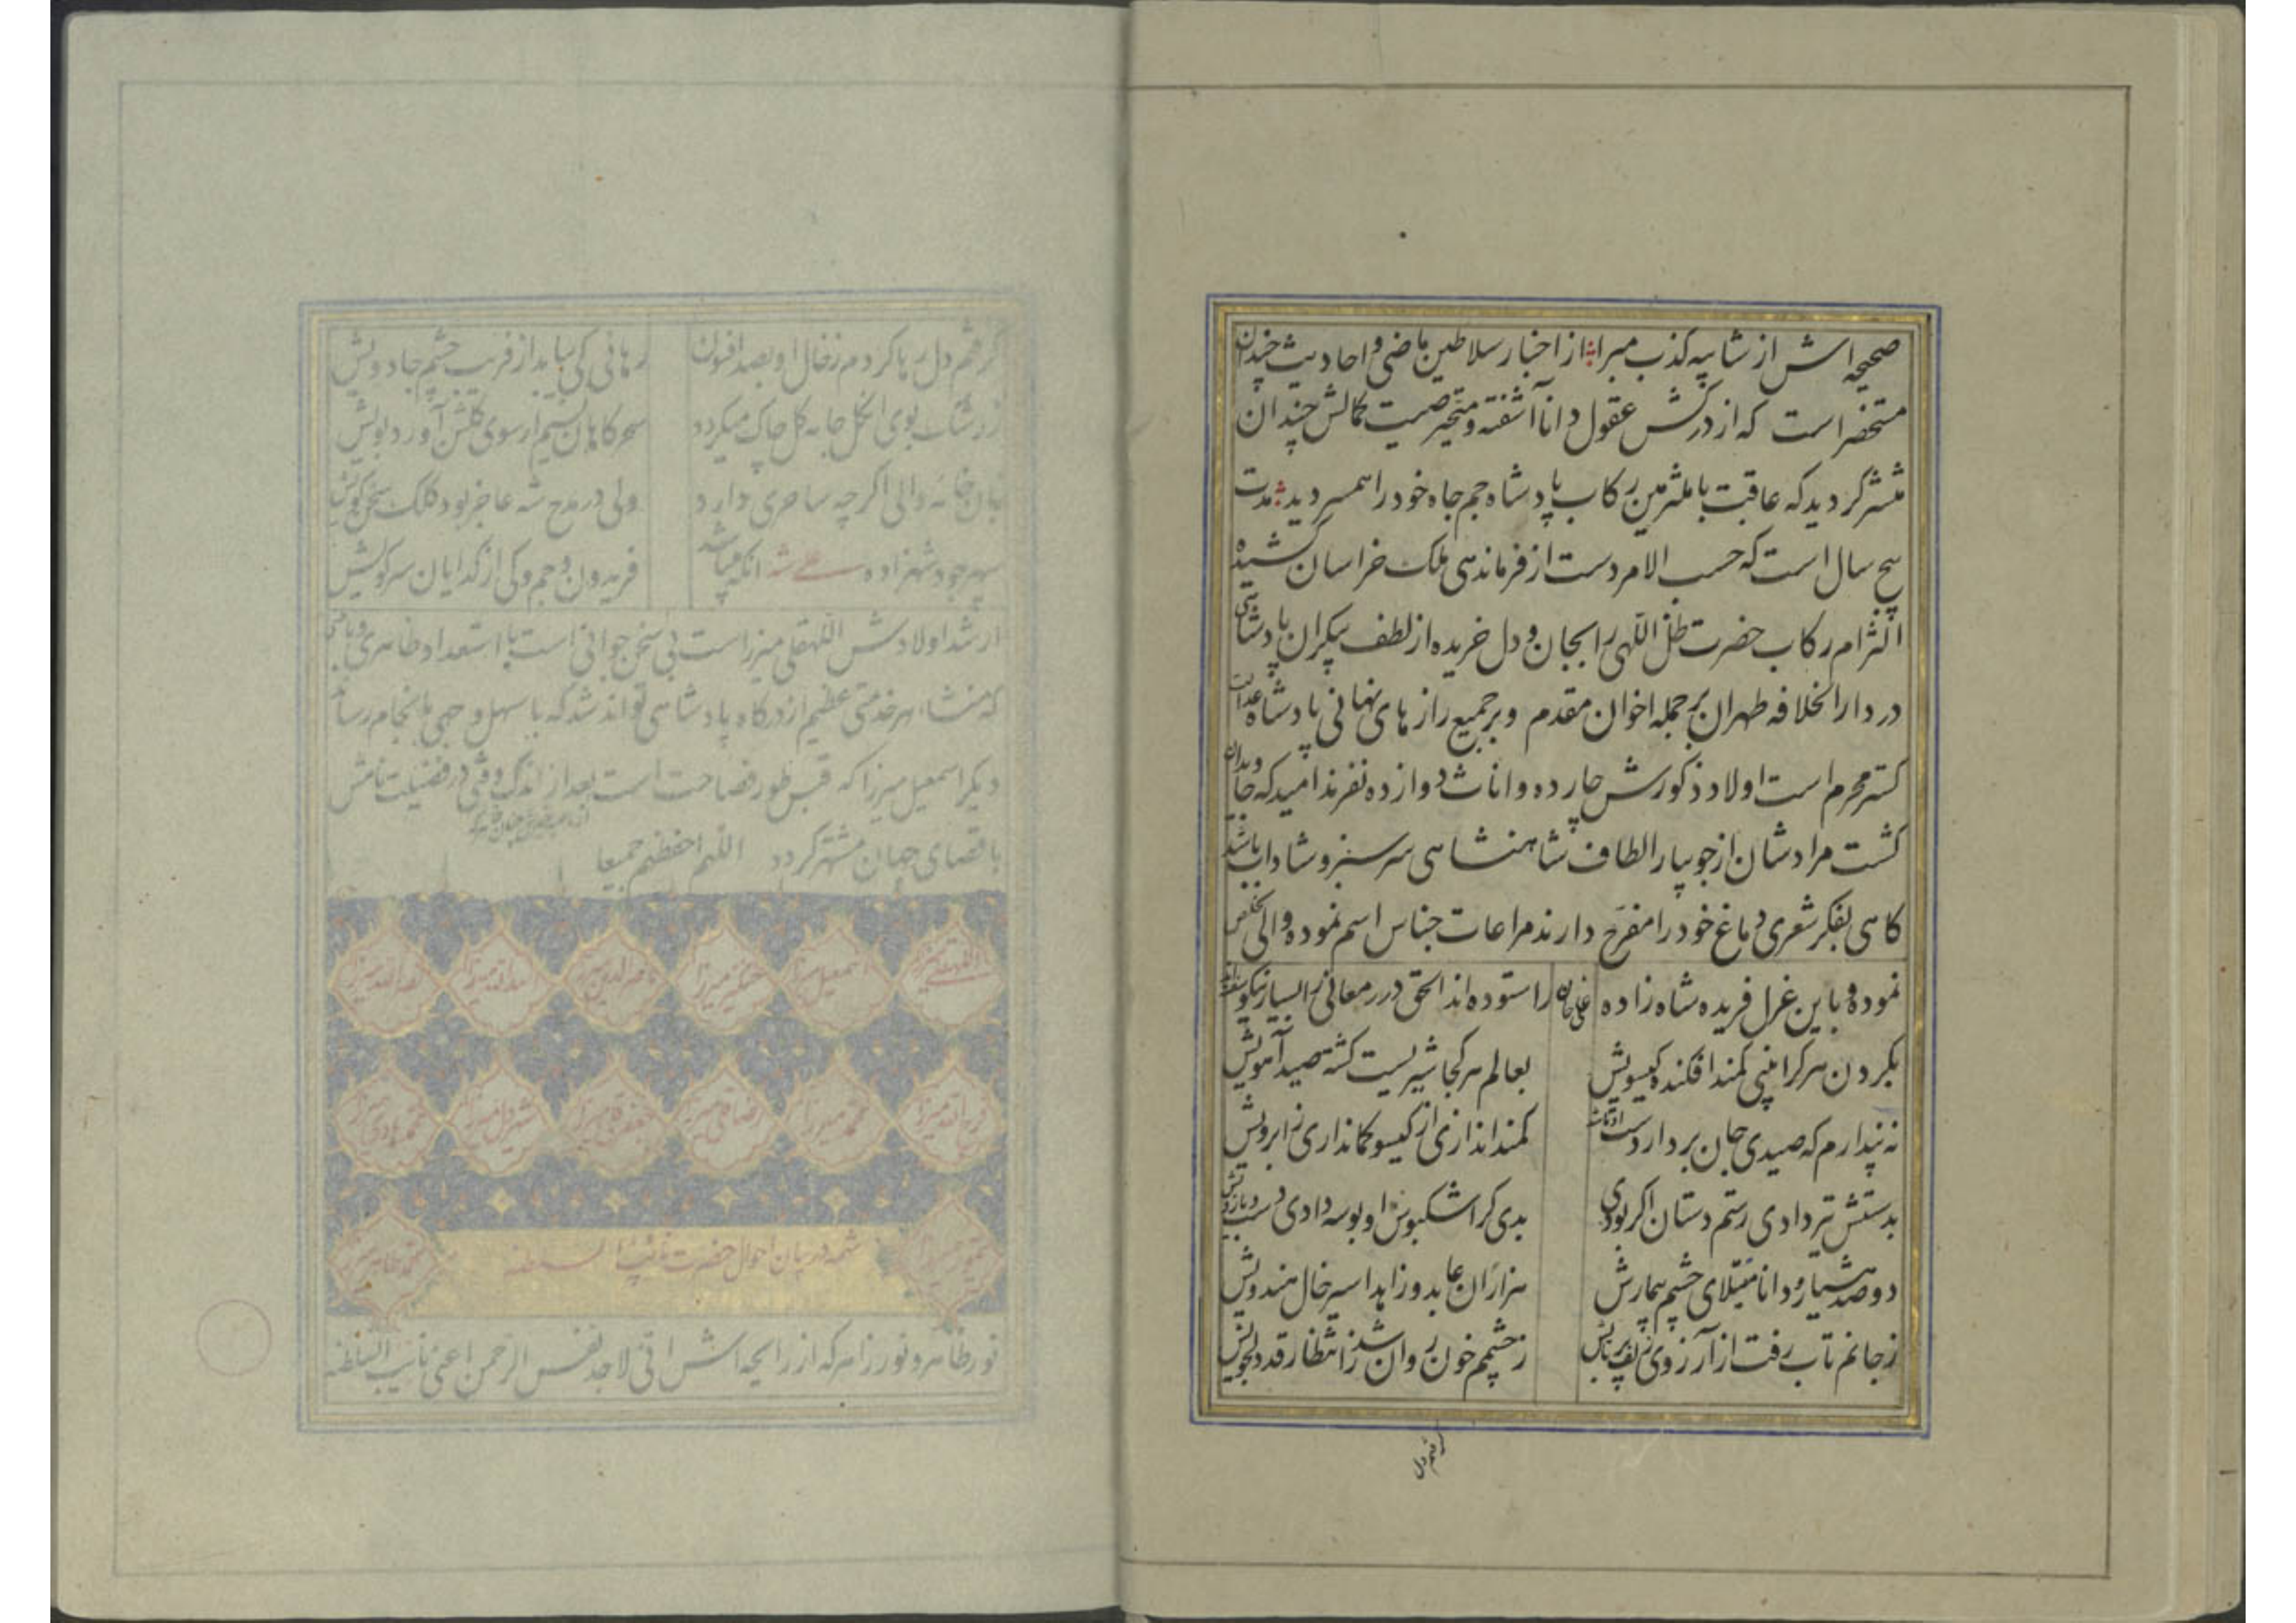 صحیحه اش از شایبه کذب مبرا از اخبار سلاطین ماضی و احادیث چندان
مستحضر است که از درکش عقول دانا آشفته و متحیر صیت کمالش چندان
منتشر گردید که عاقبت با ملتزمین رکاب پادشاه جم جاه خود را همسر دید مدت
پنج سال است که حسب الامر دست از فرماندهی ملک خراسان کشیده
التزام رکاب حضرت ظل اللهی را بجان و دل خریده از لطف بیکران پادشاهی
در دار الخلافه طهران بر جمله اخوان مقدم و بر جمیع راز های نهانی پادشاه عدالت
کستر محرم است اولاد ذکورش چارده و اناث دوازده نفرند امید که جاویدان
کشت مرادشان از جویبار الطاف شاهنشاهی سر سبز و شاداب باشد
کاهی بفکر شعری دماغ خود را مفرح دارند مراعات جناس اسم نموده والی تخلص
نموده و باین غزل فریده شاه زاده علیخان را ستوده اند الحق درر معانی را بسیار نیکو
بکردن هر کرا بینی کمند افکنده کیسویش بعالم هر کجا شیریست کشته صید آهویش
نه پندارم که صیدی جان برد از دست کمند اندازی از کیسو کمانداری ز ابرویش
بدستش تیر دادی رستم دستان اکر بودی بدی کر اشکبوس او بوسه دادی دست و بازویش
دو صد هشیار و دانا مبتلای چشم بیمارش هزاران عابد و زاهد اسیر خال هندویش
ز جانم تاب رفت از آرزوی زلف پر تابش ز چشمم خون روان شد ز انتظار قد دلجویش
کر فتم دل
کر فتم دل رها کردم ز خال او بصد افسون رهائی کی بیابد از فریب چشم جادویش
ز رشک بوی ان کل جامه کل چاک میکردد سحر کاهان نسیم ار سوی کلشن آورد بویش
والی اکر چه ساحری دارد ولی در مدح شه عاجز بود کلک سخن کویش
سپهر جود شهزاده علی شه انکه میباشد فریدون و جم و کی از کدایان سر کویش
ارشد اولادش اللهقلی میرزاست بی سخن جوانی است با استعداد ظاهری و باطنی
که منشاء هر خدمتی عظیم از درکاه پادشاهی تواند شد که باسهل وجهی بانجام رساند
دیکر اسمعیل میرزا که قبس طور فصاحت است بعد از اندک وقتی در فضیلت نامش
باقصای جهان مشتهر کردد اللهم احفظهم جمیعا
اللهقلی میرزا اسمعیل میرزا چنکیز میرزا ناصر الدین میرزا اسد الله میرزا نصر الله میرزا
نور الله میرزا محمد میرزا رضاقلی میرزا جعفر قلی میرزا شیر دل میرزا محمد هادی میرزا
تیمور میرزا شمه در بیان احوال حضرت نائب السلطنه محمد طاهر میرزا
نور ظاهر و نور زاهر که از رایحه اش انی لاجد نفس الرحمن اعنی نایب السلطنه